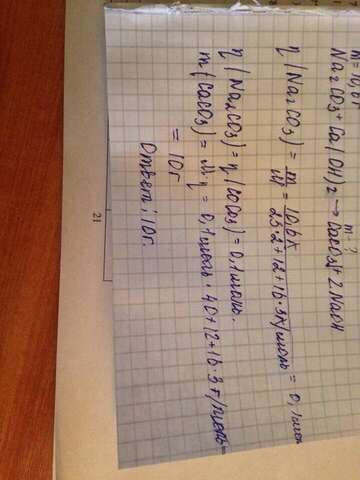 m=10,6г
m-?
Na₂CO₃ + Ca(OH)₂ → CaCO₃↓ + 2NaOH
η(Na₂CO₃) = m/M = 10,6г/23·2+12+16·3г/моль = 0,1моль
η(Na₂CO₃) = η(CaCO₃) = 0,1моль.
m(CaCO₃) = M·η = 0,1моль · 40+12+16·3г/моль =
= 10г
Ответ: 10г.
21